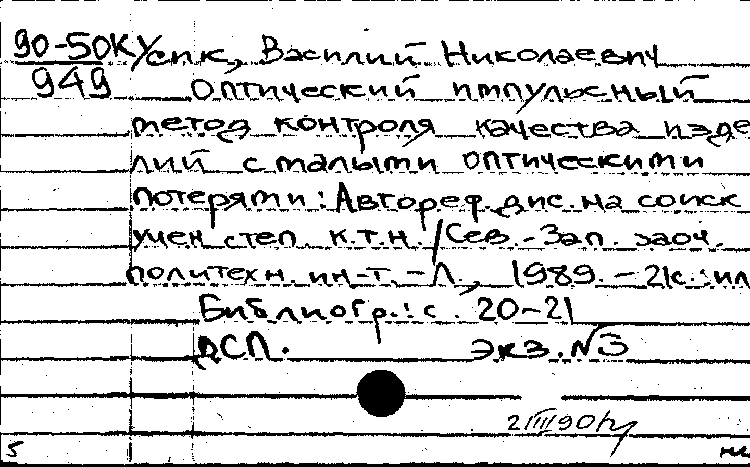 90-50К Успк, Василий Николаевич
949 Оптический импульсный
метод контроля качества изде
лий с малыми оптическими
потерями: Автореф. дис. на соиск
учен степ. к.т.н. / Сев.-Зап. заоч.
политехн. ин-т. - Л., 1989. - 21с.: ил
Библиогр.: с. 20-21
ДСП. экз. №3
2/III90
5